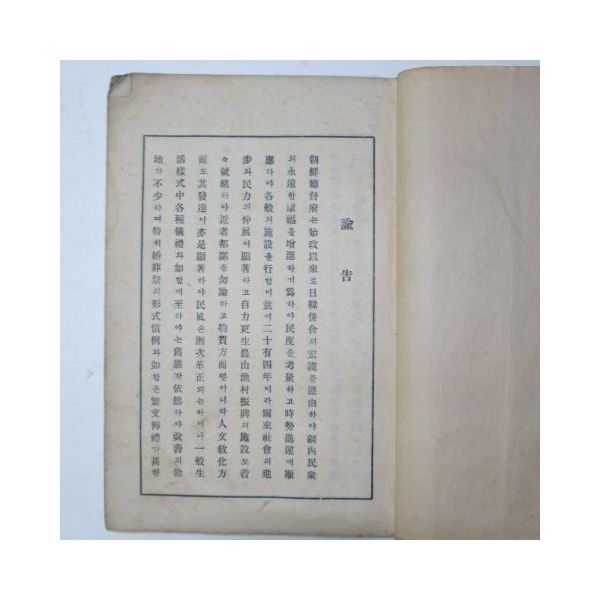 諭告
朝鮮總督府는始政以來로日韓併合의宏謨를遵由하야疆內民衆
의永遠한康福을增進하기爲하야民度를考量하고時勢進運에順
應하야各般의施設을行함이玆에二十有四年이라爾來社會의進
步와民力의伸展이顯著하고自力更生農山漁村振興의施設도着
々就緖하야近者都鄙를勿論하고物質方面뿐아니라人文敎化方
面도其發達이亦是顯著하야民風은漸次革正되는바이나一般生
活樣式中各種儀禮와如함에至하야는舊態가依然하야改善의餘
地가不少하며特히婚葬祭의形式慣例와如함은繁文縟禮가甚한